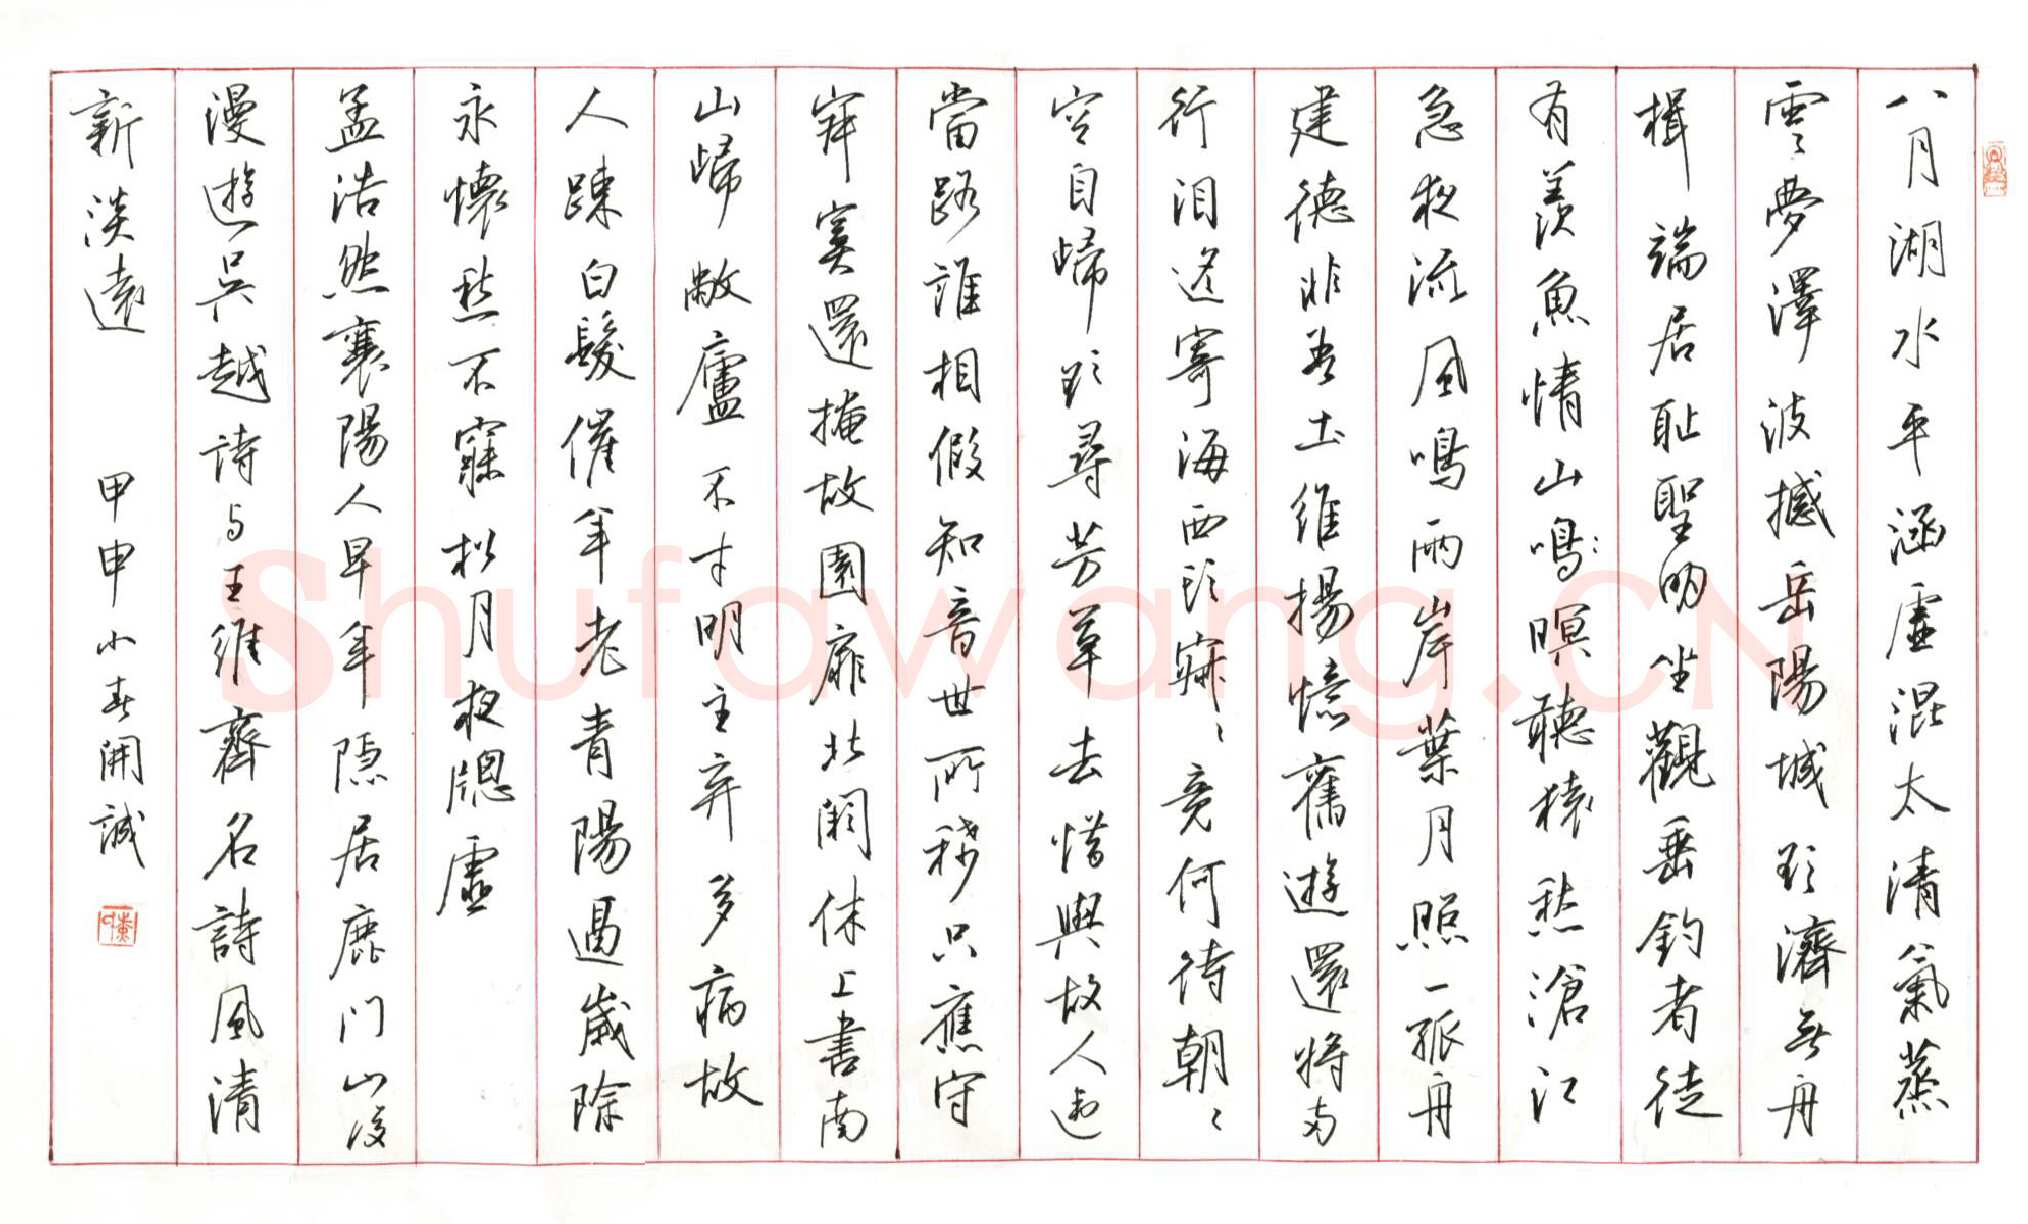 八月湖水平涵虛混太清氣蒸
雲夢澤波撼岳陽城欲濟無舟
楫端居耻聖明坐觀垂釣者徒
有羨魚情山鳴暝聽猿愁滄江
急夜流風鳴兩岸葉月照一孤舟
建德非吾土維揚憶舊遊還將兩
行泪遙寄海西頭寂〻竟何待朝〻
空自歸欲尋芳草去惜與故人違
當路誰相假知音世所稀只應守
寂寞還掩故園扉北闕休上書南
山歸敝廬不才明主弃多病故
人踈白髮催年老青陽逼歲除
永懷愁不寐松月夜牕虛
孟浩然襄陽人早年隱居鹿門山後
漫遊吳越詩与王維齊名詩風清
新淡遠
甲申小春開誠
陳
Shufawang.CN